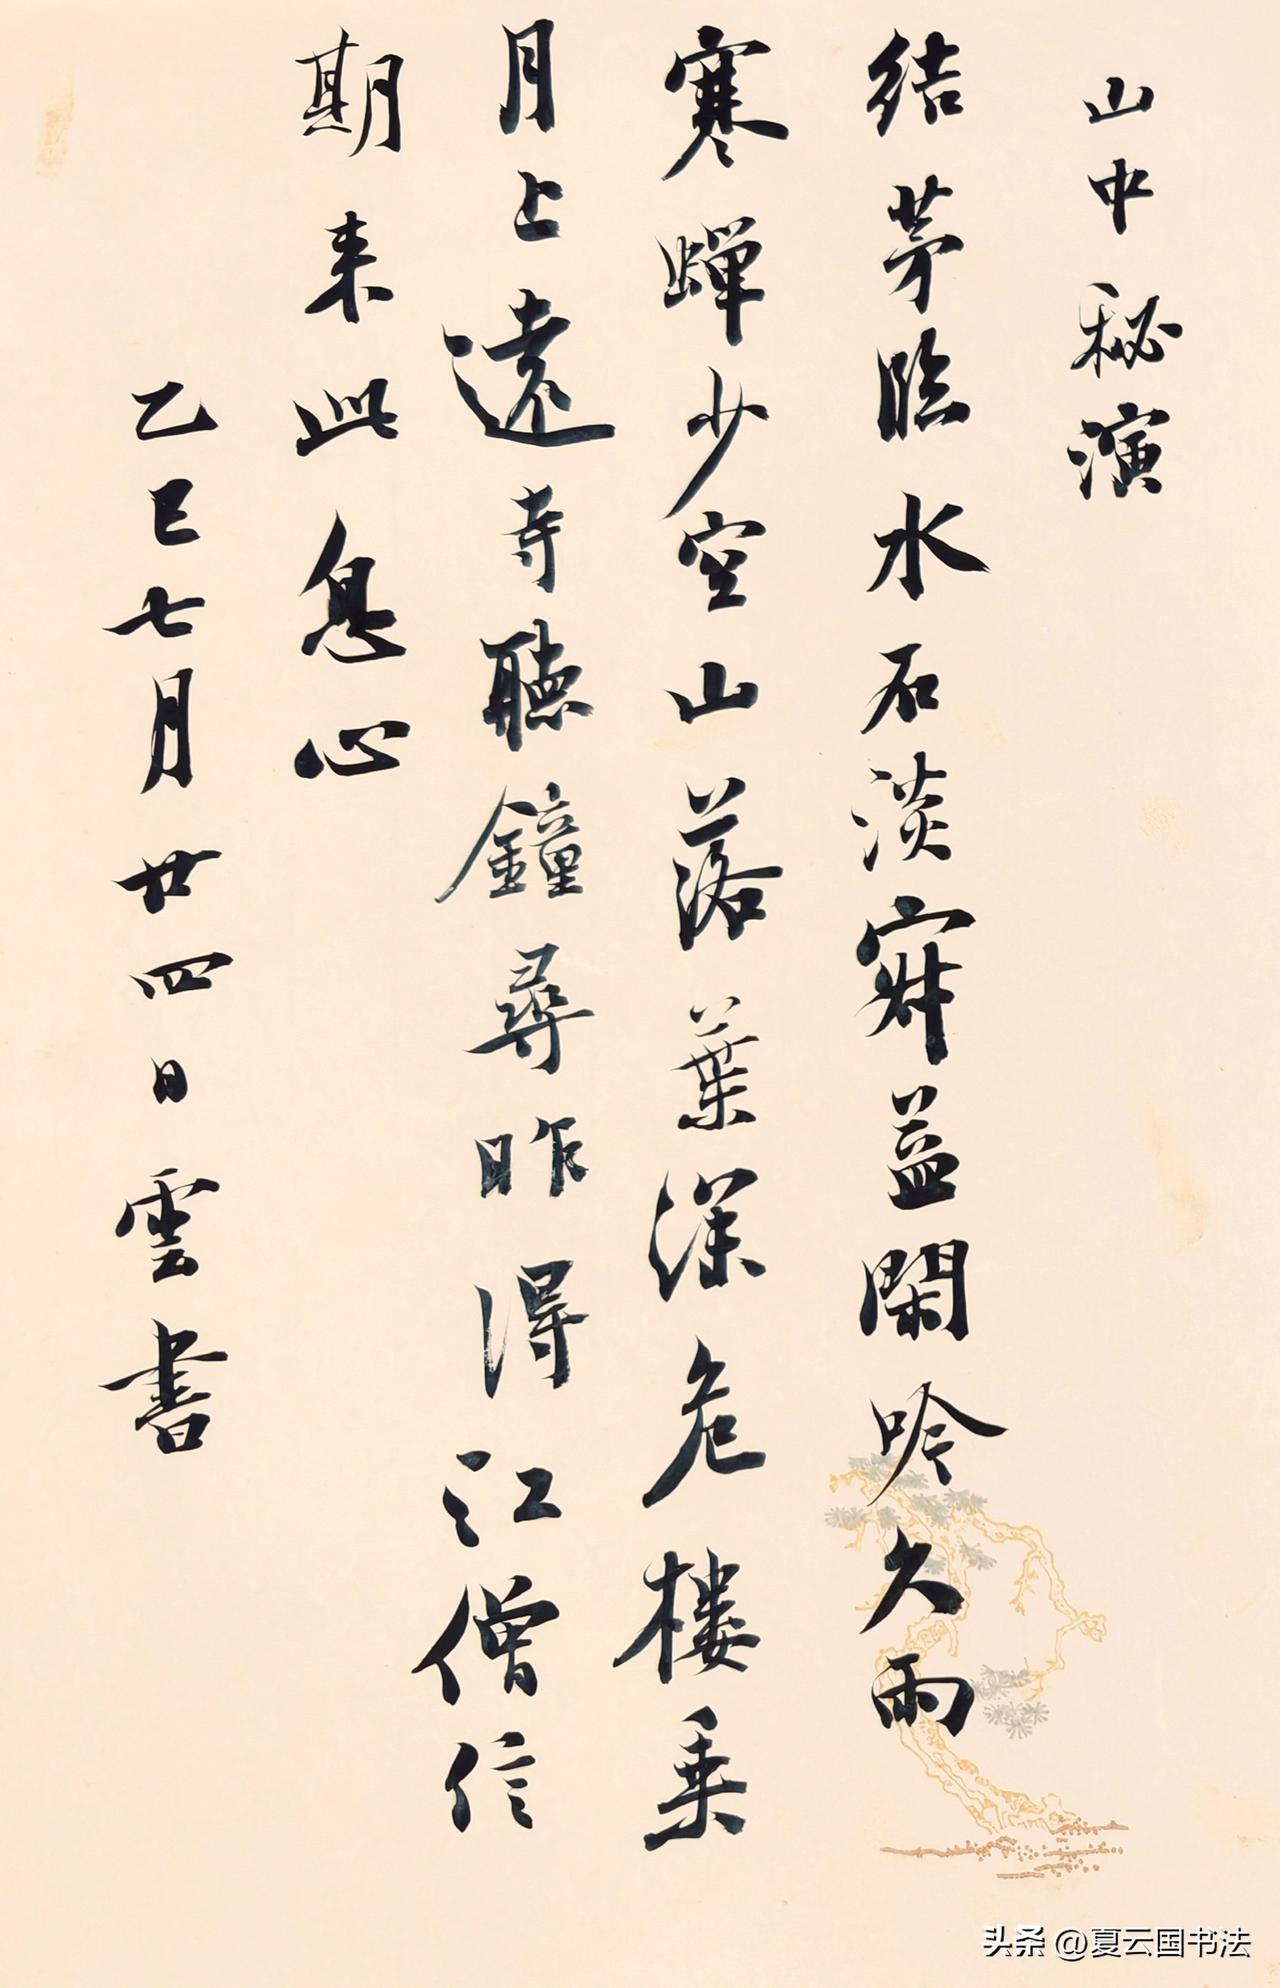 山中 秘演
结茅臨水石淡寂益閑吟久雨
寒蟬少空山落葉深危樓乗
月上遠寺聽鐘尋昨得江僧信
期来此息心
乙巳七月廿四日雲書
头条 @夏云国书法